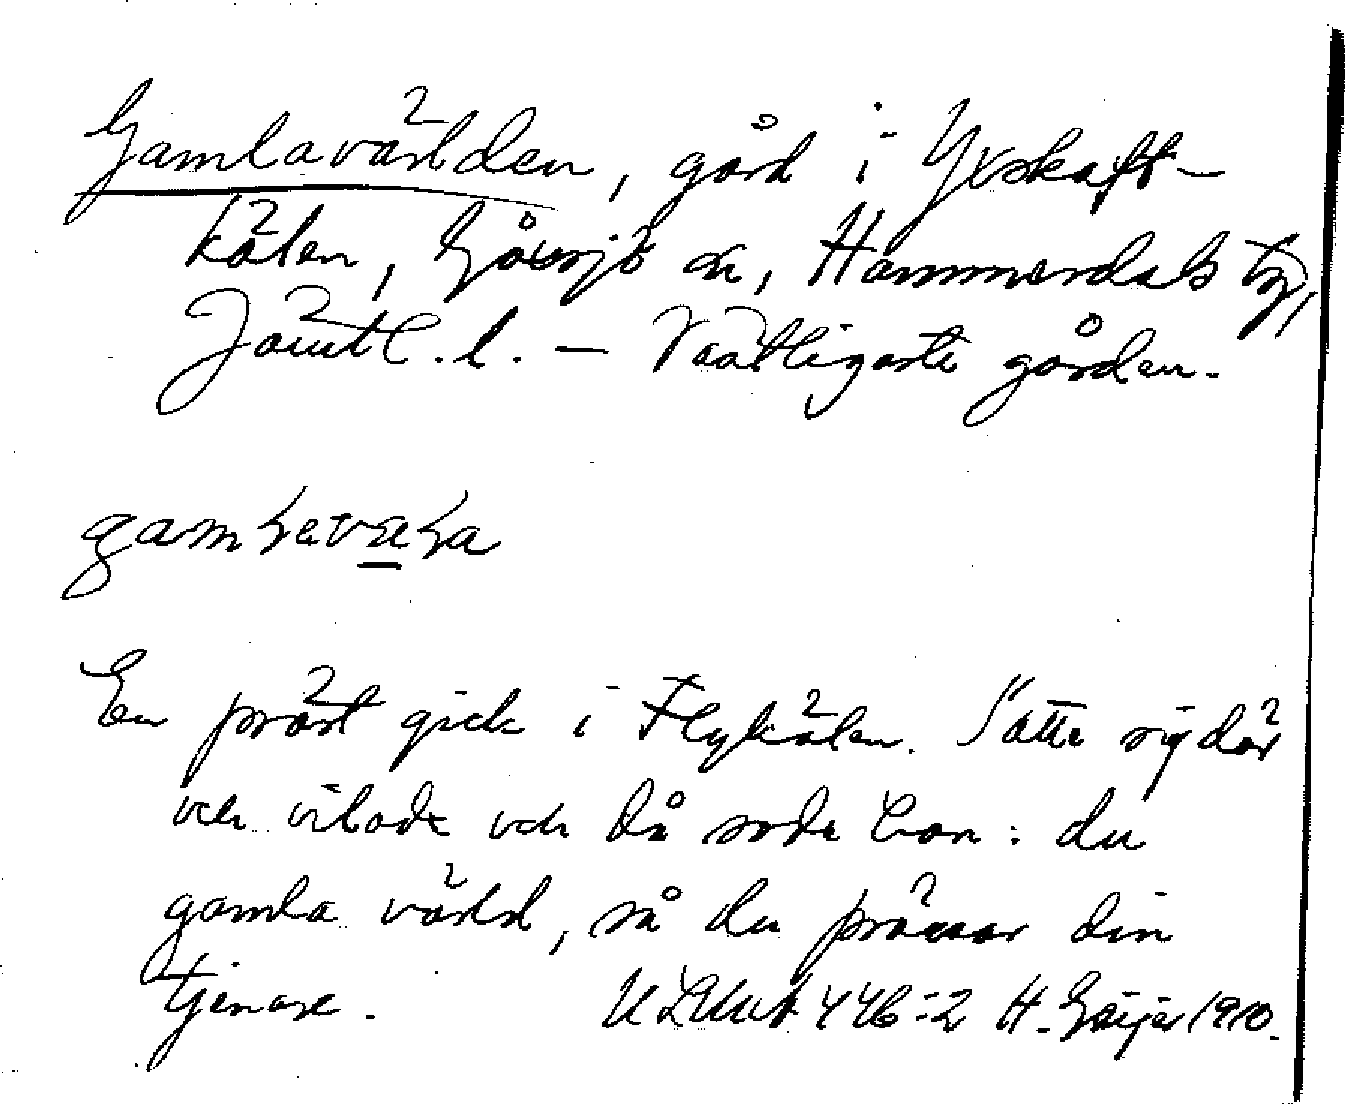 Gamlavärlden, gård i Yxskaft-
kälen, Gåxsjö sn, Hammerdals tg,
Jämtl. l. — Västligaste gården.
En präst gick i Flykälen. Satte sig där
och vilade och då sade han: du
gamla värld, så du prässar din
tjenare. ULMA 446:2 H. Geijer 1910.